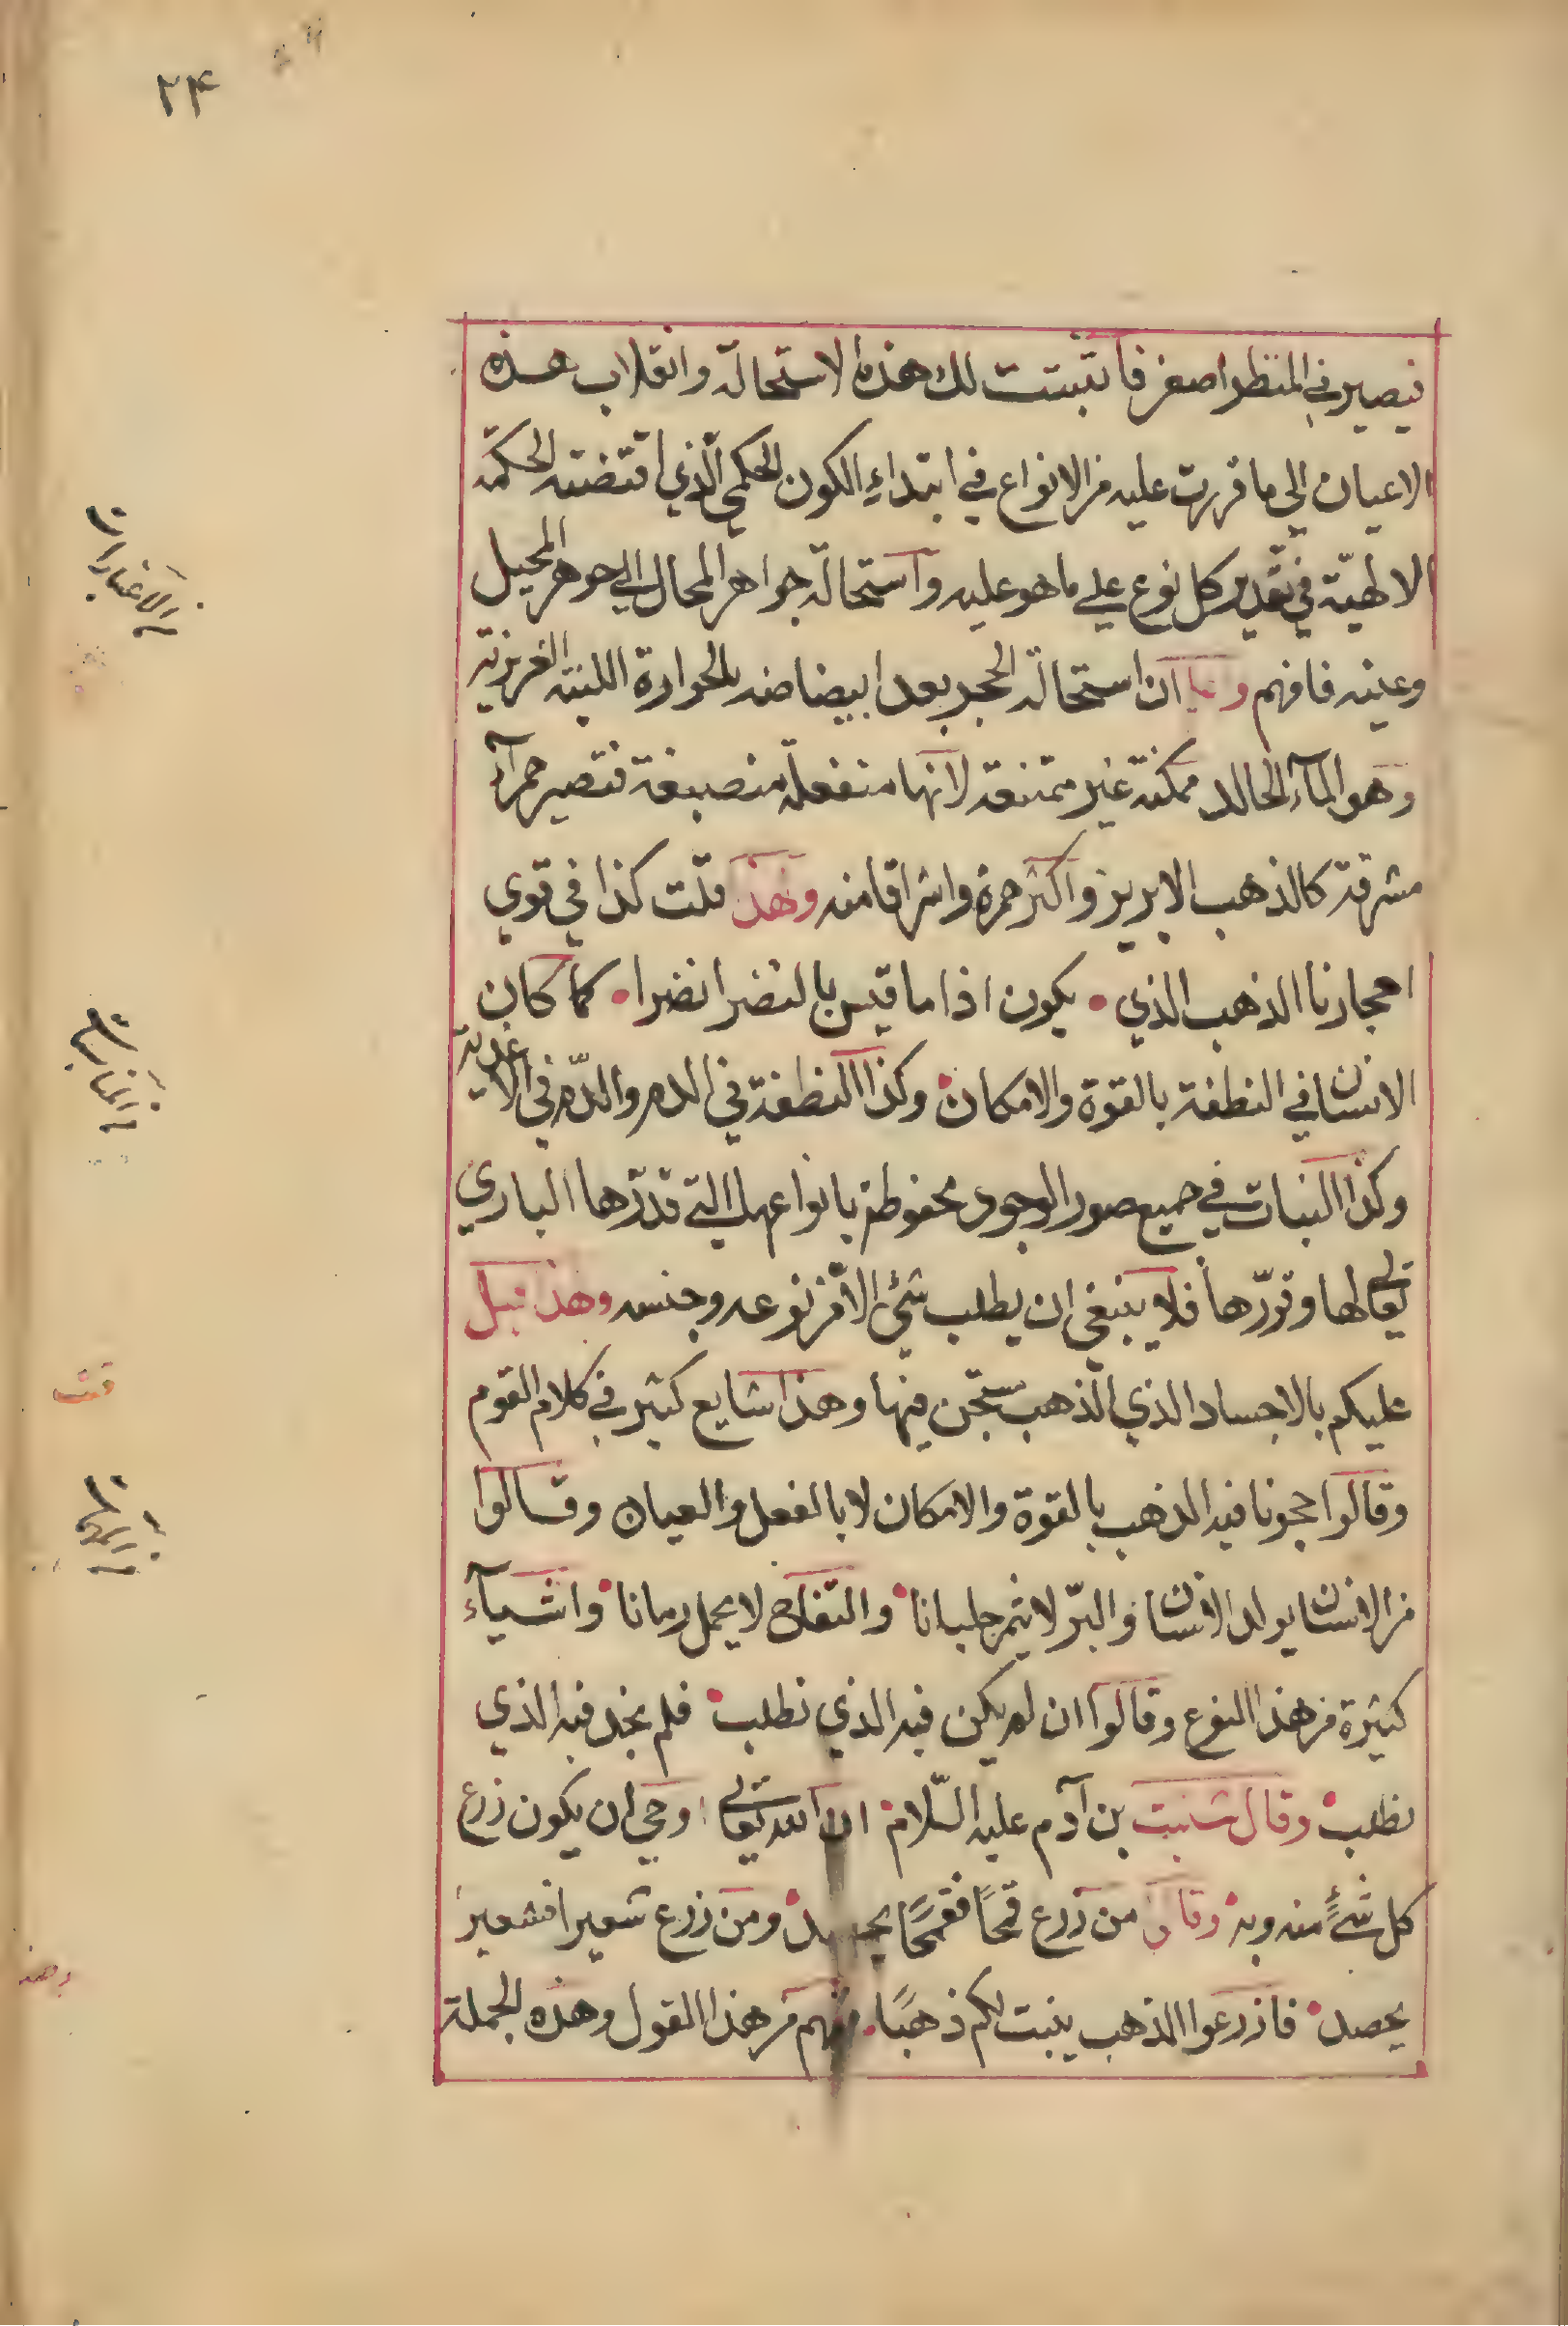 ۲۴
فيصير في المنظر اصغر فاذا تثبتت لك هذه الاستحالة وانقلاب هذه
الاعيان الي ما قررت عليه من الانواع في ابتداء الكون الحكمي الّذي اقتضته الحكمة
الالهيّة في تقدير كل نوع علي ما هو عليه وآستحالة جواهر المحال الي جوهر المحيل
وعينه فافهم ان استحالة الحجر بعد ابيضاضه بالحرارة اللينة الغريزية
وهو المآء الخالد ممكنة غير ممتنعة لانها منفعلة منصبغة فتصير حمرآء
مشرقة كالذهب الابريز واكثر حمرة واشراقا منه وهذا قلت كذا في قوي
احجارنا الذهب الذي • يكون اذا ما قيس بالنضر انضرا • كما كان
الانسان في النطفة بالقوة والامكان وكذا النطفة في الدم والدّم في الاغدية
وكذا النبات في جميع صور الوجود محفوظة بانواعها التي قدرّها الباري
تعالي لها وقرّرها فلا ينبغي ان يطلب شئ الّا من نوعه وجنسه وهذا قيل
عليكم بالاجساد الذي الّذهب سجّن فيها وهذا شايع كثير في كلام القوم
وقالوا حجرنا فيه الذهب بالقوة والامكان لا بالفعل والعيان وقالوا
من الانسان يولد الانسان والبرّ لا يثمر جلبانا والتفاح لا يحمل رمانا واشيآء
كثيرة من هذا النوع وقالوا ان لم يكن فيه الذي نطلب فلم نجد فيه الذي
نطلب وقال شيث بن آدم عليه السّلام ان الله تعالي اوحي ان يكون زرع
كل شئٍ منه وبه وقال من زرع قمحاً فقمحًا يحصد ومن زرع شعيرا فشعير
يحصد فازرعوا الذهب ينبت لكم ذهبًا • فافهم من هذا القول وهذه الجملة